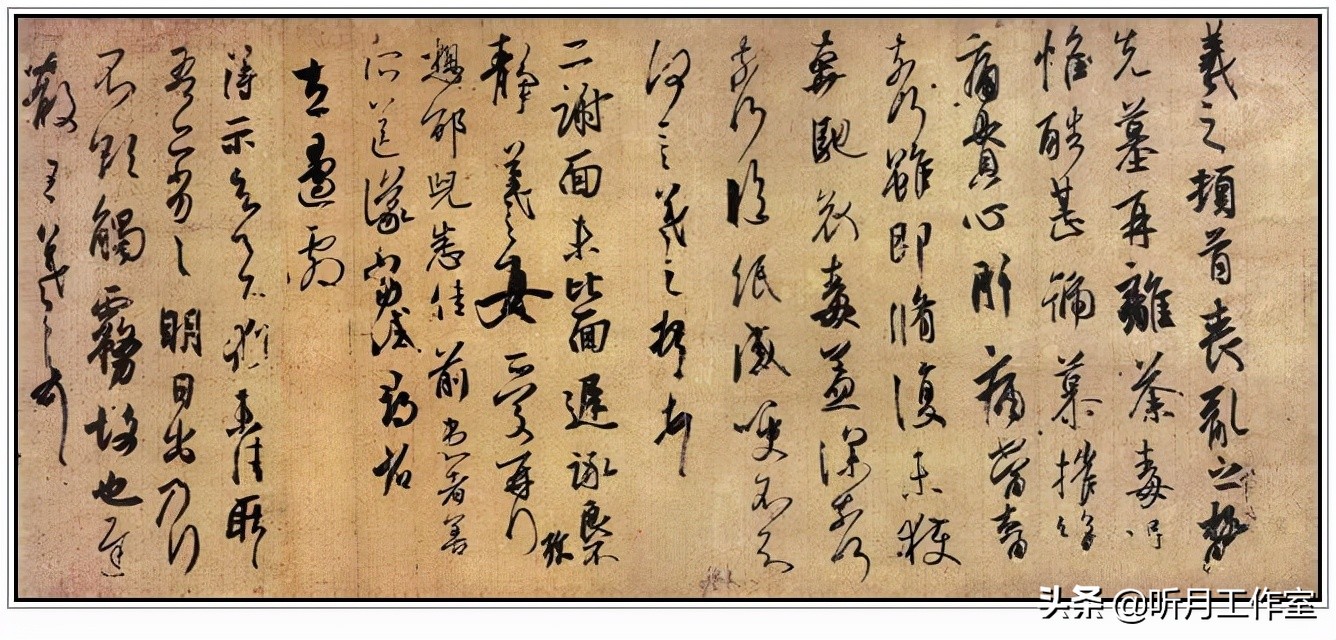 羲之頓首喪亂之極
先墓再離荼毒追
惟酷甚號慕摧絶
痛貫心肝痛當奈何
奈何雖即脩復未獲
奔馳哀毒益深奈何
奈何臨紙感哽不知
何言羲之頓首
二謝面未比面遲詠良不
珍
靜羲之女愛再拜
想邰兒悉佳前患者善
所送議當試尋省
左邊劇
得示知足下猶未佳耿
吾亦劣劣明日出乃行
不欲觸霧故也遲
散王羲之頓首
头条 @昕月工作室